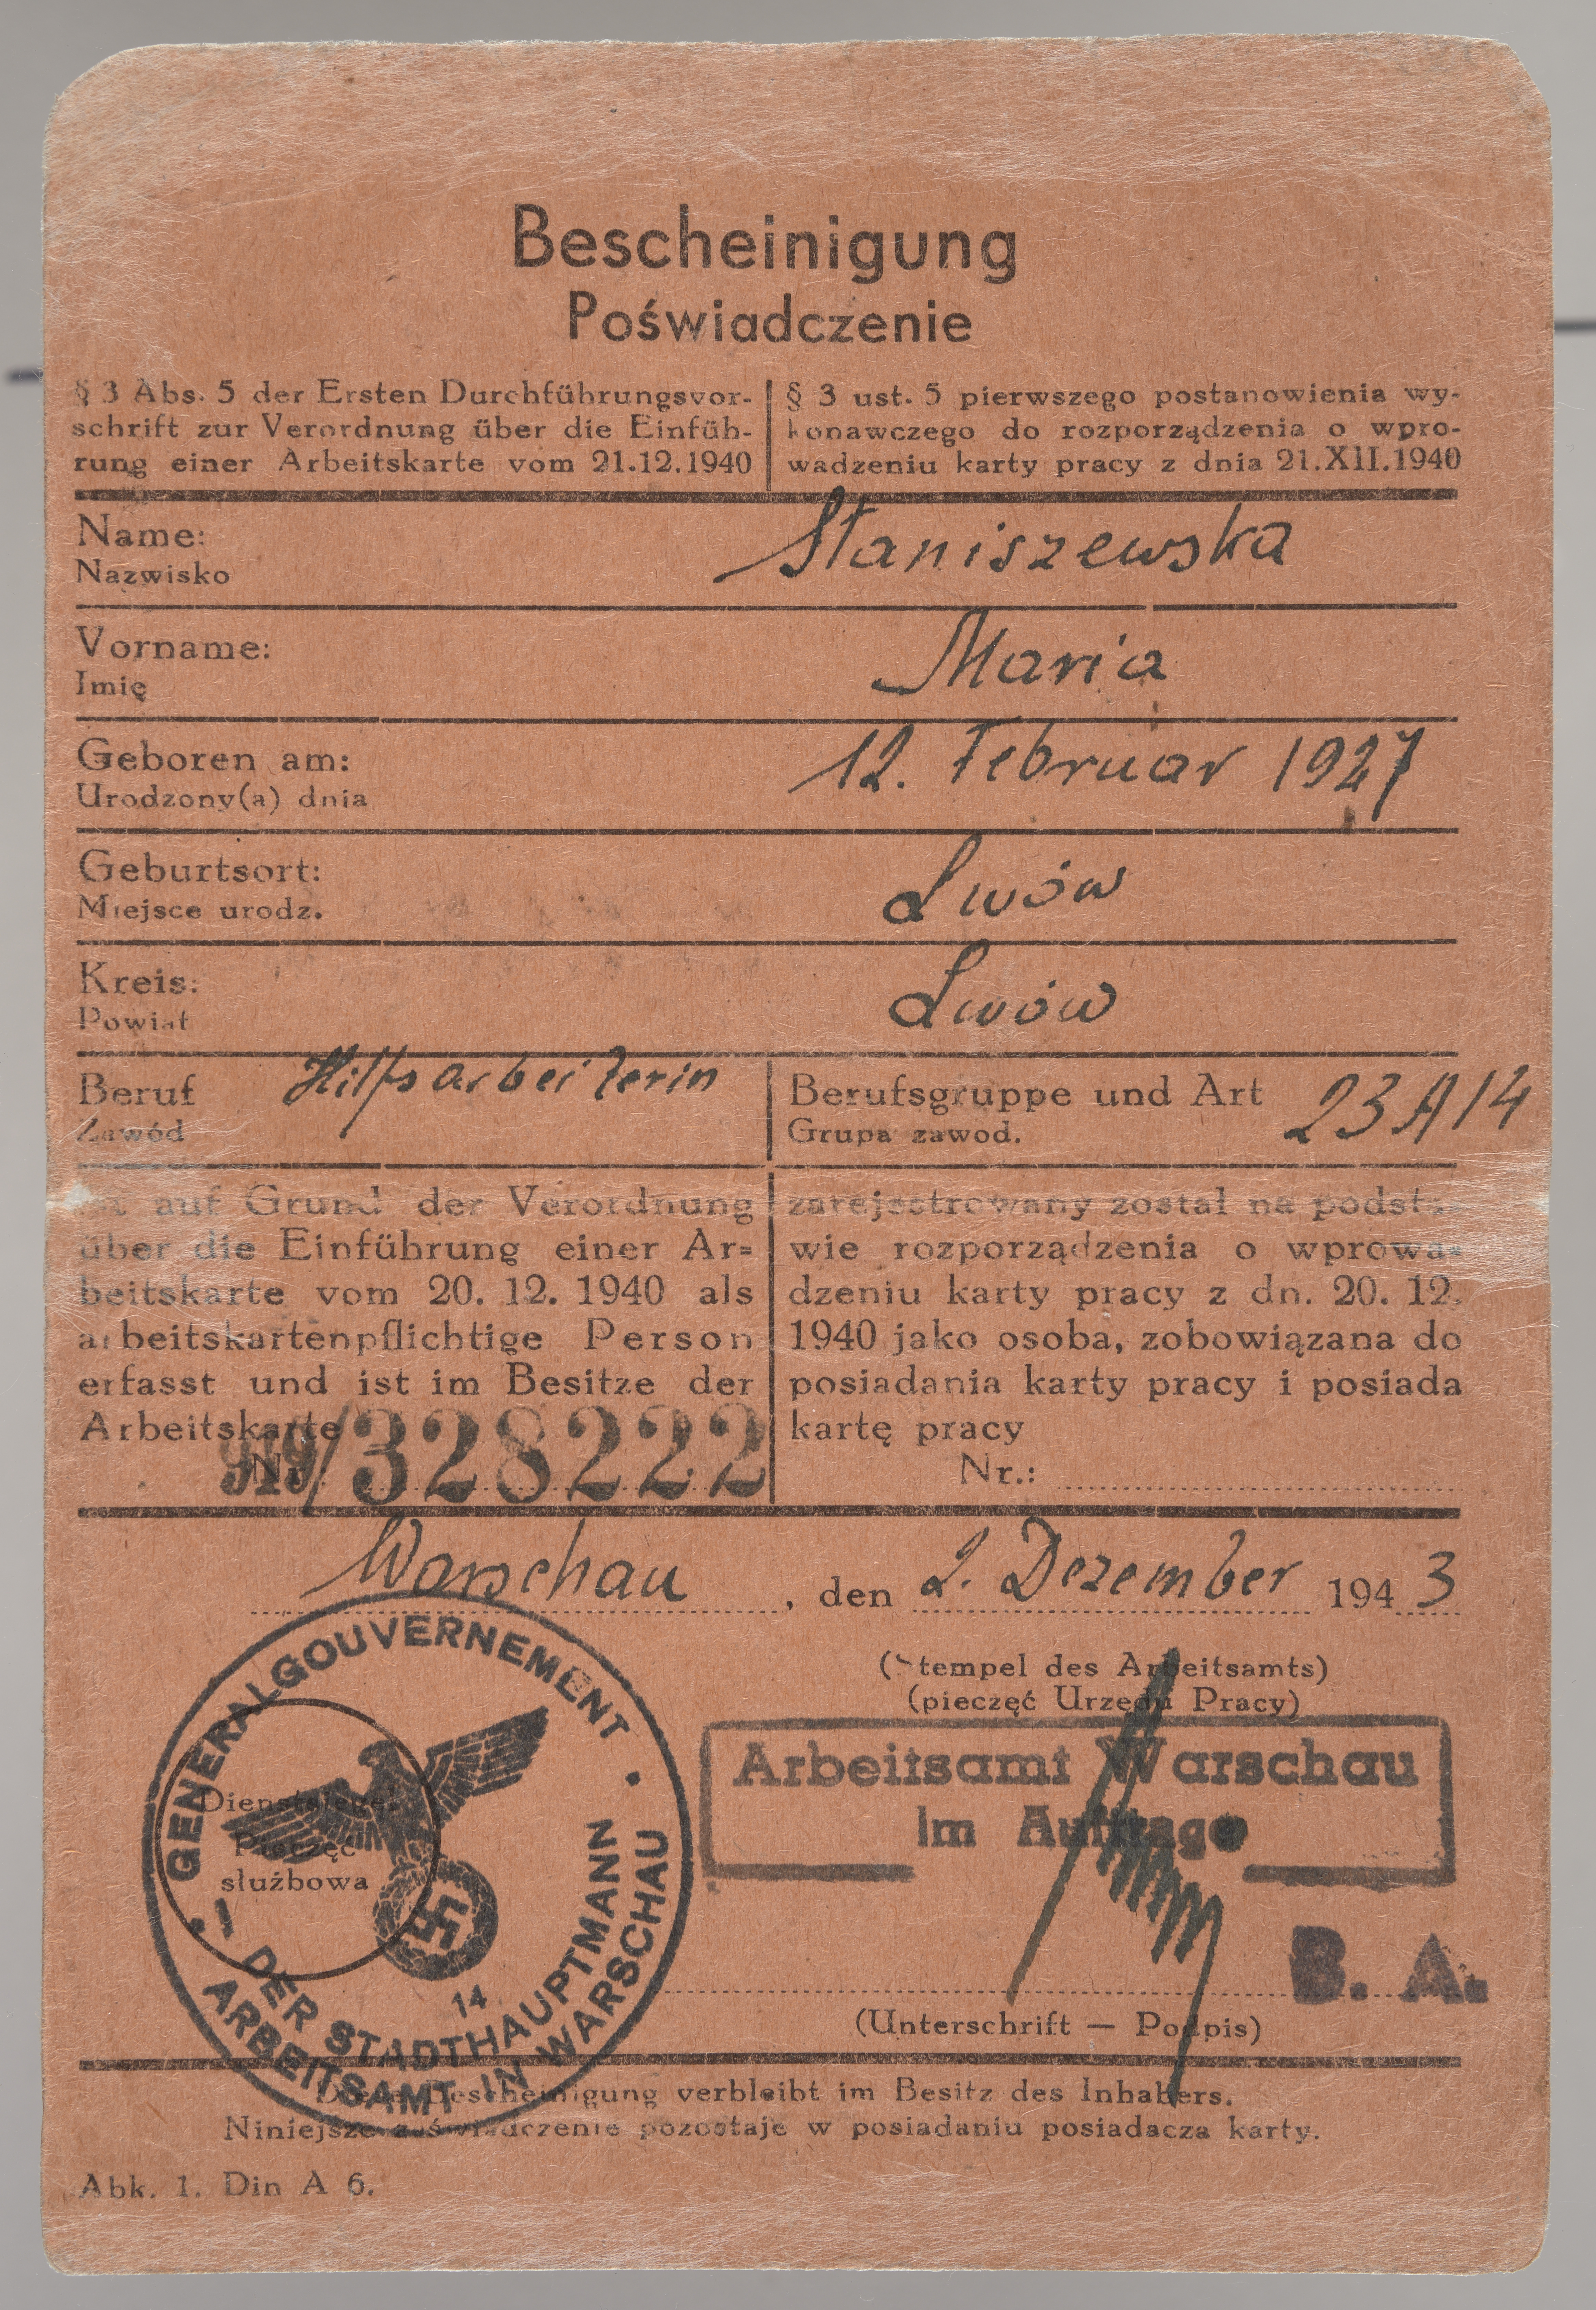 Bescheinigung
Poświadczenie
§ 3 Abs. 5 der Ersten Durchführungsvor-
schrift zur Verordnung über die Einfüh-
rung einer Arbeitskarte vom 21.12.1940
§ 3 ust. 5 pierwszego postanowienia wy-
konawczego do rozporządzenia o wpro-
wadzeniu karty pracy z dnia 21.XII.1940
Name: Staniszewska
Nazwisko
Vorname: Maria
Imię
Geboren am: 12. Februar 1927
Urodzony(a) dnia
Geburtsort: Lwów
Miejsce urodz.
Kreis: Lwów
Powiat
Beruf Hilfsarbeiterin
Zawód
Berufsgruppe und Art 23 A 14
Grupa zawod.
ist auf Grund der Verordnung
über die Einführung einer Ar=
beitskarte vom 20. 12. 1940 als
arbeitskartenpflichtige Person
erfasst und ist im Besitze der
Arbeitskarte
Nr. 919/328222
zarejestrowany został na podsta-
wie rozporządzenia o wprowa-
dzeniu karty pracy z dn. 20. 12.
1940 jako osoba, zobowiązana do
posiadania karty pracy i posiada
kartę pracy
Nr.:
Warschau, den 2. Dezember 1943
(Stempel des Arbeitsamts)
(pieczęć Urzędu Pracy)
Arbeitsamt Warschau
Im Auftrage
B. A.
(Unterschrift — Podpis)
GENERALGOUVERNEMENT
DER STADTHAUPTMANN
ARBEITSAMT IN WARSCHAU
14
Dienstsiegel
Pieczęć
służbowa
Diese Bescheinigung verbleibt im Besitz des Inhabers.
Niniejsze poświadczenie pozostaje w posiadaniu posiadacza karty.
Abk. 1. Din A 6.